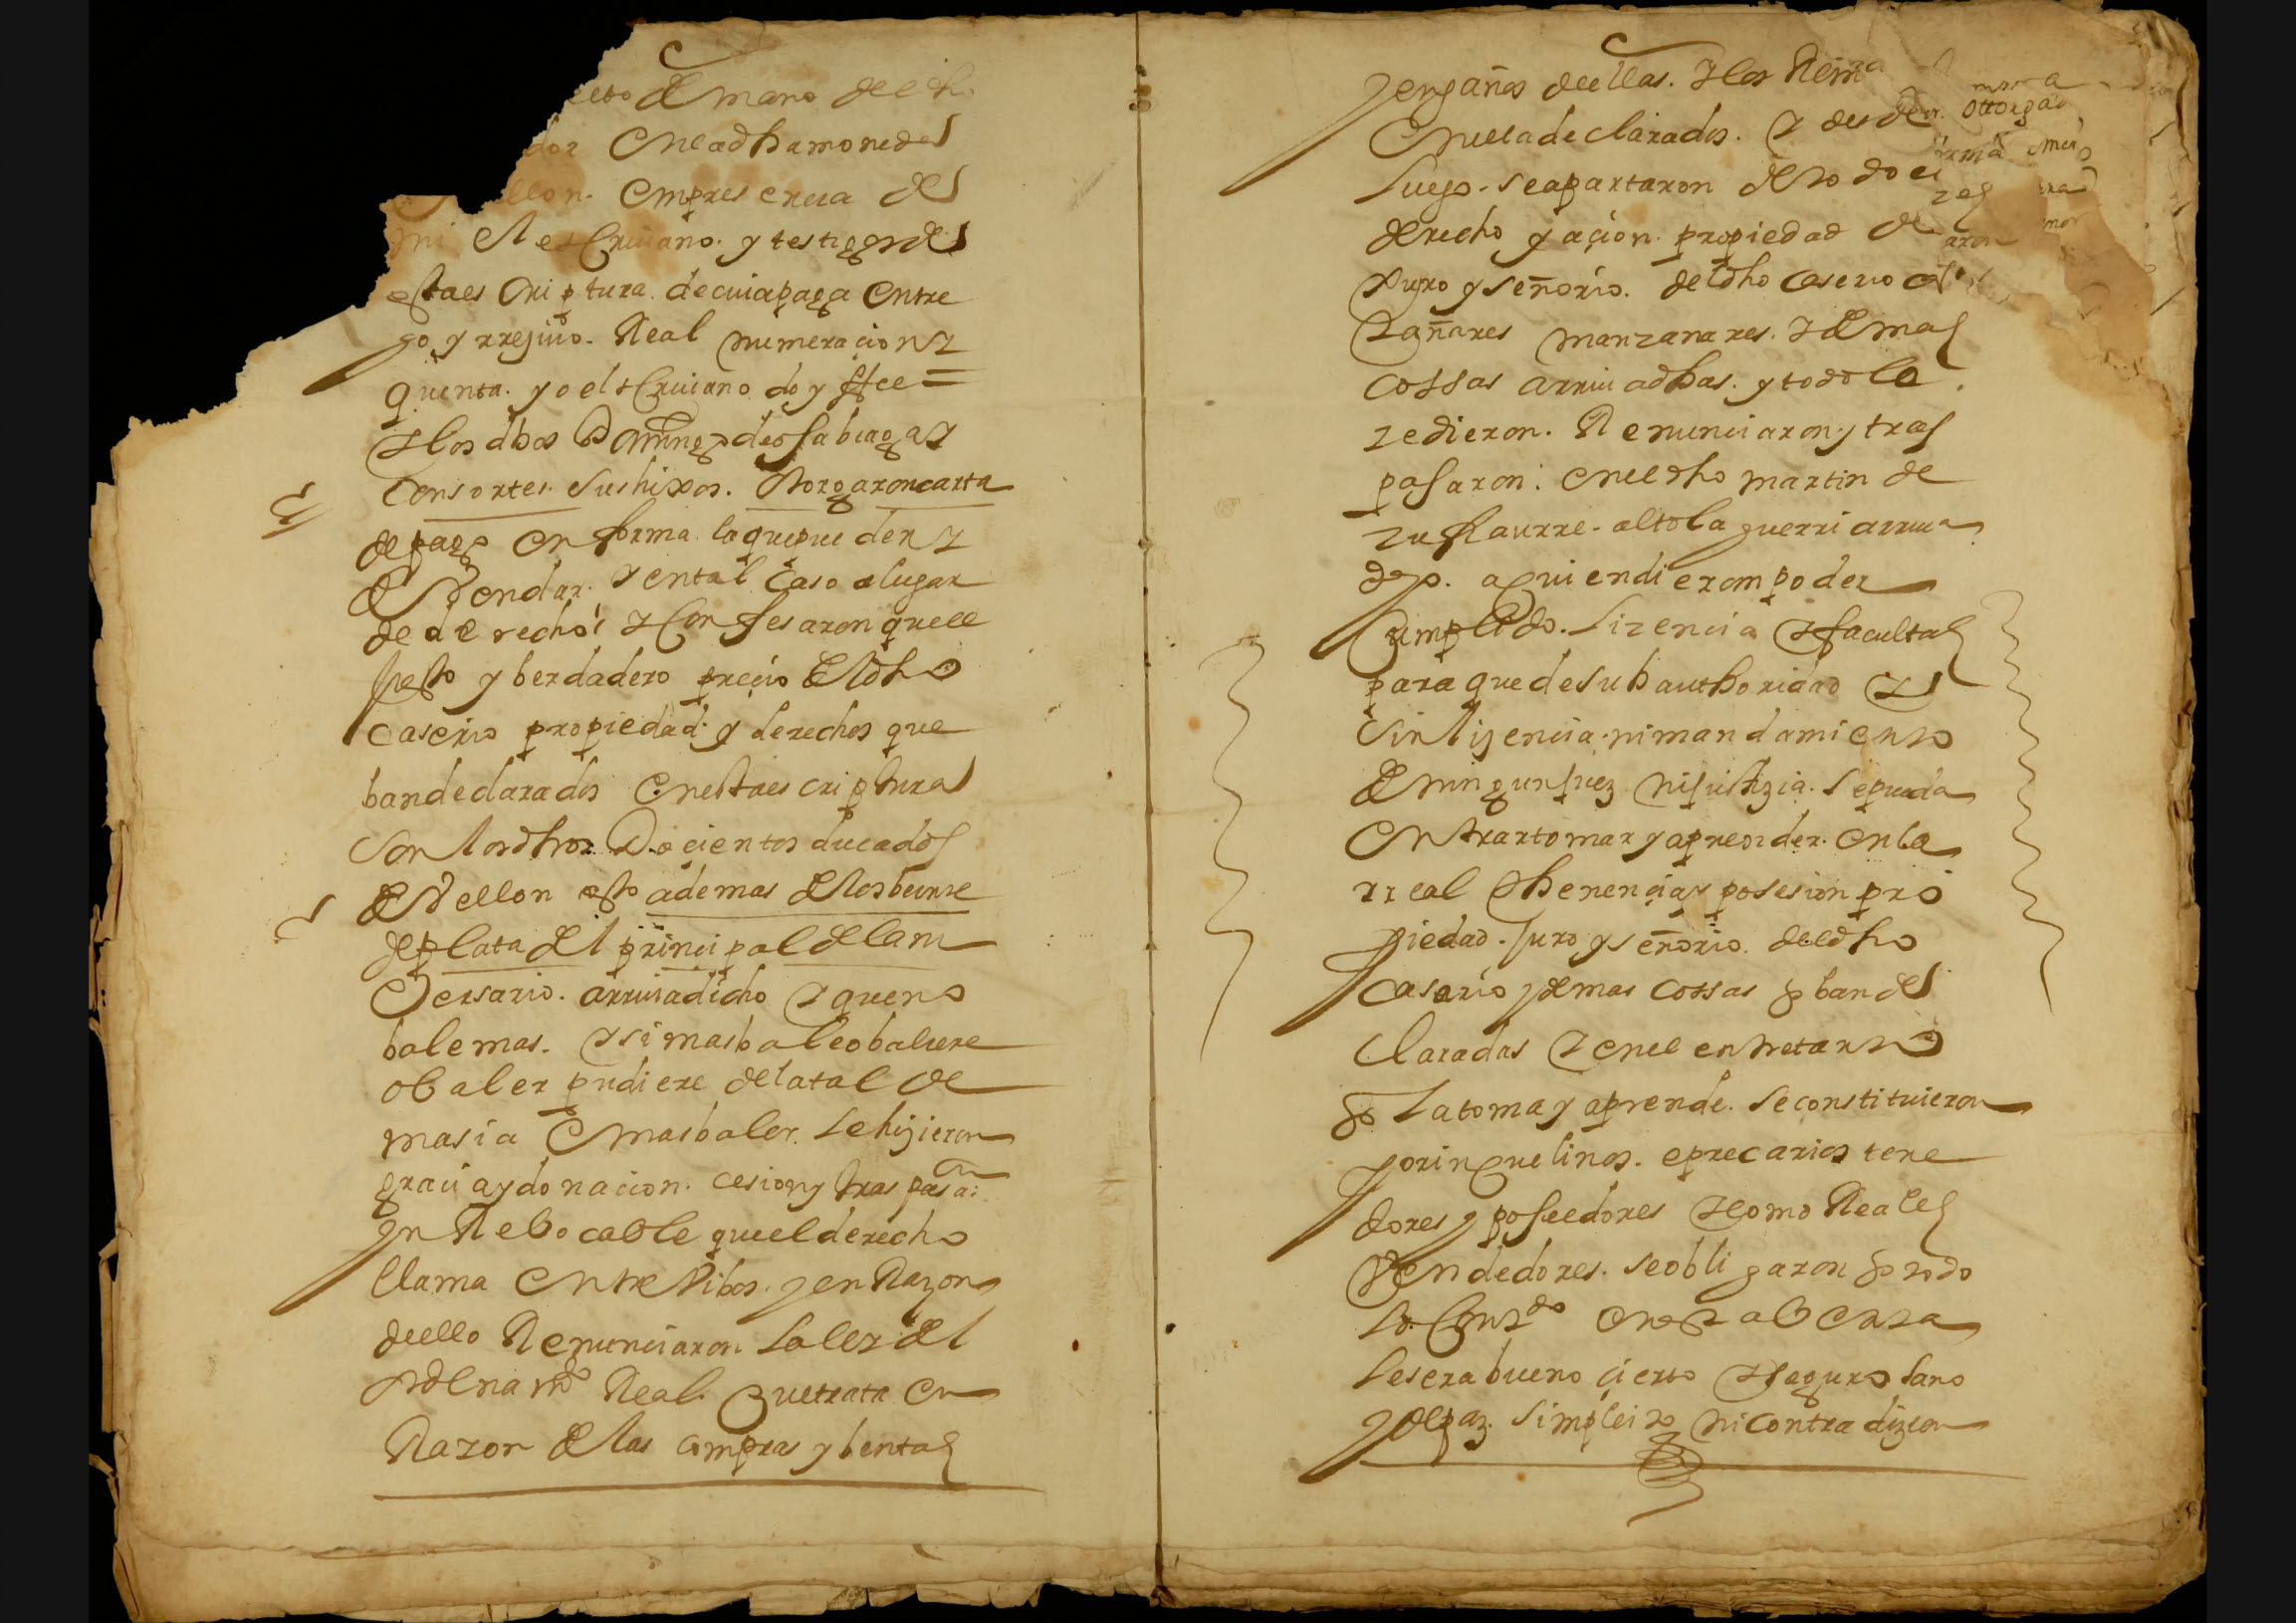 de mano del dho
en la dha moneda
vellon. en presencia de
mi el escriuano. y testigos de
esta escriptura. de cuia paga entre
go y rreciuo. Real numeracion y
quenta. yo el escriuano doy ffee =
y los dhos Domingo de olabiaga y
Consortes. sus hixos. otorgaron carta
de pago en forma. la que pueden y
deben dar. y en tal caso a lugar
de derecho. y confesaron que el
justo y berdadero precio del dho
caserio propiedad. y derechos que
ban declarados en esta escriptura
son los dhos Docientos ducados
de Vellon esto ademas de los beinte
de plata del principal del ani
versario. arriua dicho y que no
bale mas. y si mas bale o baliere
o baler pudiere de la tal de
masia e mas baler. le hizieron
gracia y donacion. cesion y traspasaon
yn Rebocable que el derecho
llama entre Vibos. y en Razon
de ello Renunciaron la ley del
ordenamto Real. que trata en
Razon de las compras y bentas
y engaños de ellas. y los Rema
en ella declarados. y desde
luego. se apartaron de todo el
derecho y acion. propiedad de
Juro y señorio. del dho caserio cas
tañares manzanares. y demas
cossas arriua dhas. y todo lo
zedieron. Renunciaron y tras
pasaron. en el dho martin de
zufiaurre. altolaguerri arriua
dho. a quien dieron poder
cumplido. lizencia y facultad
para que de su authoridad y
sin lizencia. ni mandamiento
de ningun juez ni justizia. se pueda
entrar tomar y aprender. en la
rreal thenencia y posesion pro
piedad. juro y señorio. del dho
caserio y demas cossas q ban de
claradas y en el entretanto
q la toma y aprende. se constituieron
por inquelinos. e precarios tene
dores y poseedores y como Reales
Vendedores. se obligaron q todo
lo contdo en esta benta
les era bueno cierto y seguro sano
y de paz. sin pleito ni contradizion